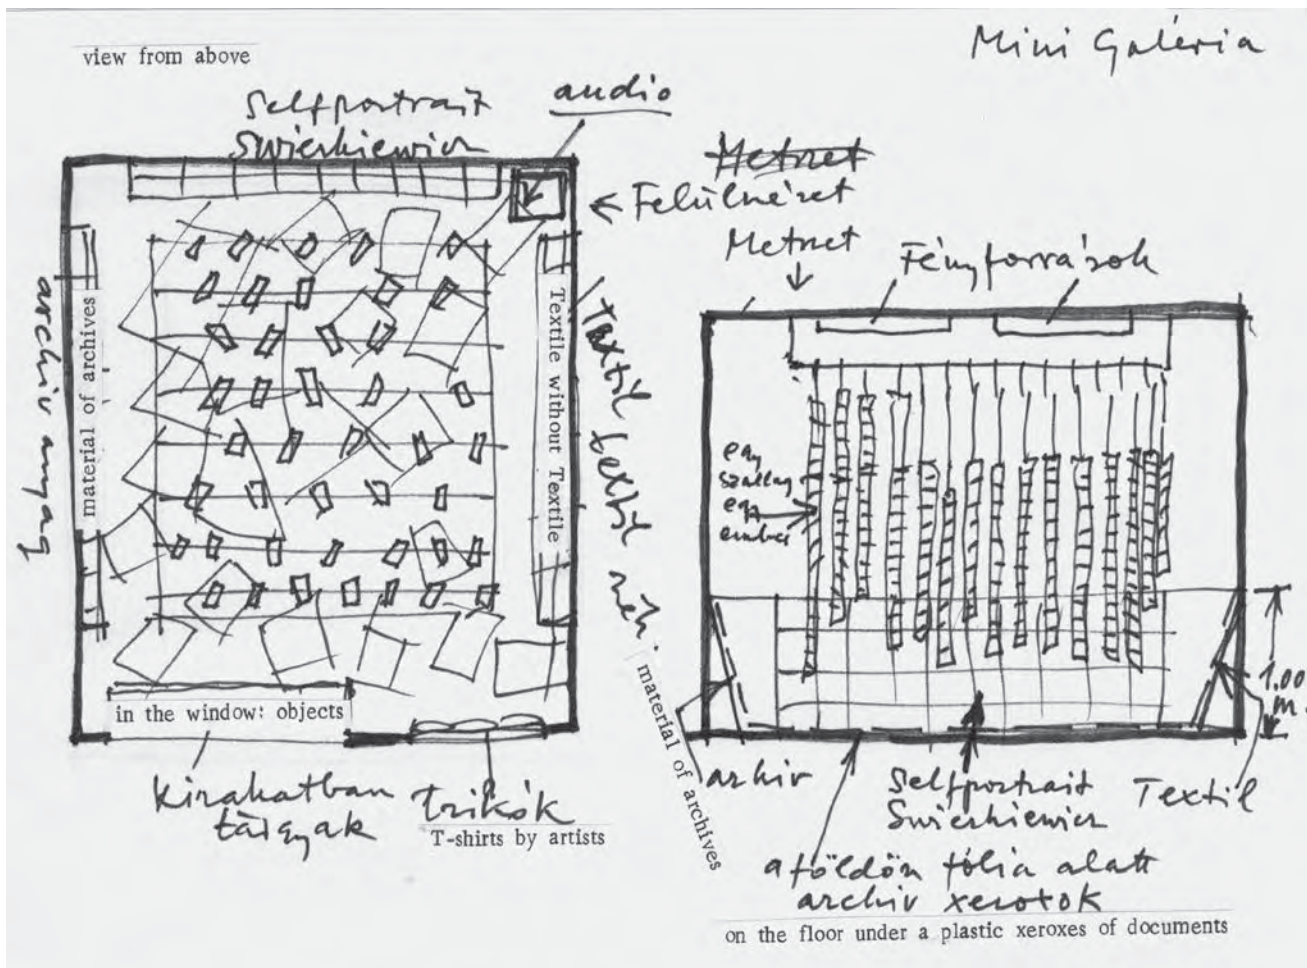 Mini Galéria
view from above
Selfportrait
Swierkiewicz
audio
Metszet
← Felülnézet
Metszet
Fényforrások
archiv anyag
material of archives
Textile without Textile
textil textil nélk.
egy
szallag
egy
ember
1.00
m.
in the window: objects
Kirakatban
tárgyak
trikók
T-shirts by artists
material of archives
arhiv
Selfportrait
Swierkiewicz
Textil
a földön fólia alatt
archiv xeroxok
on the floor under a plastic xeroxes of documents